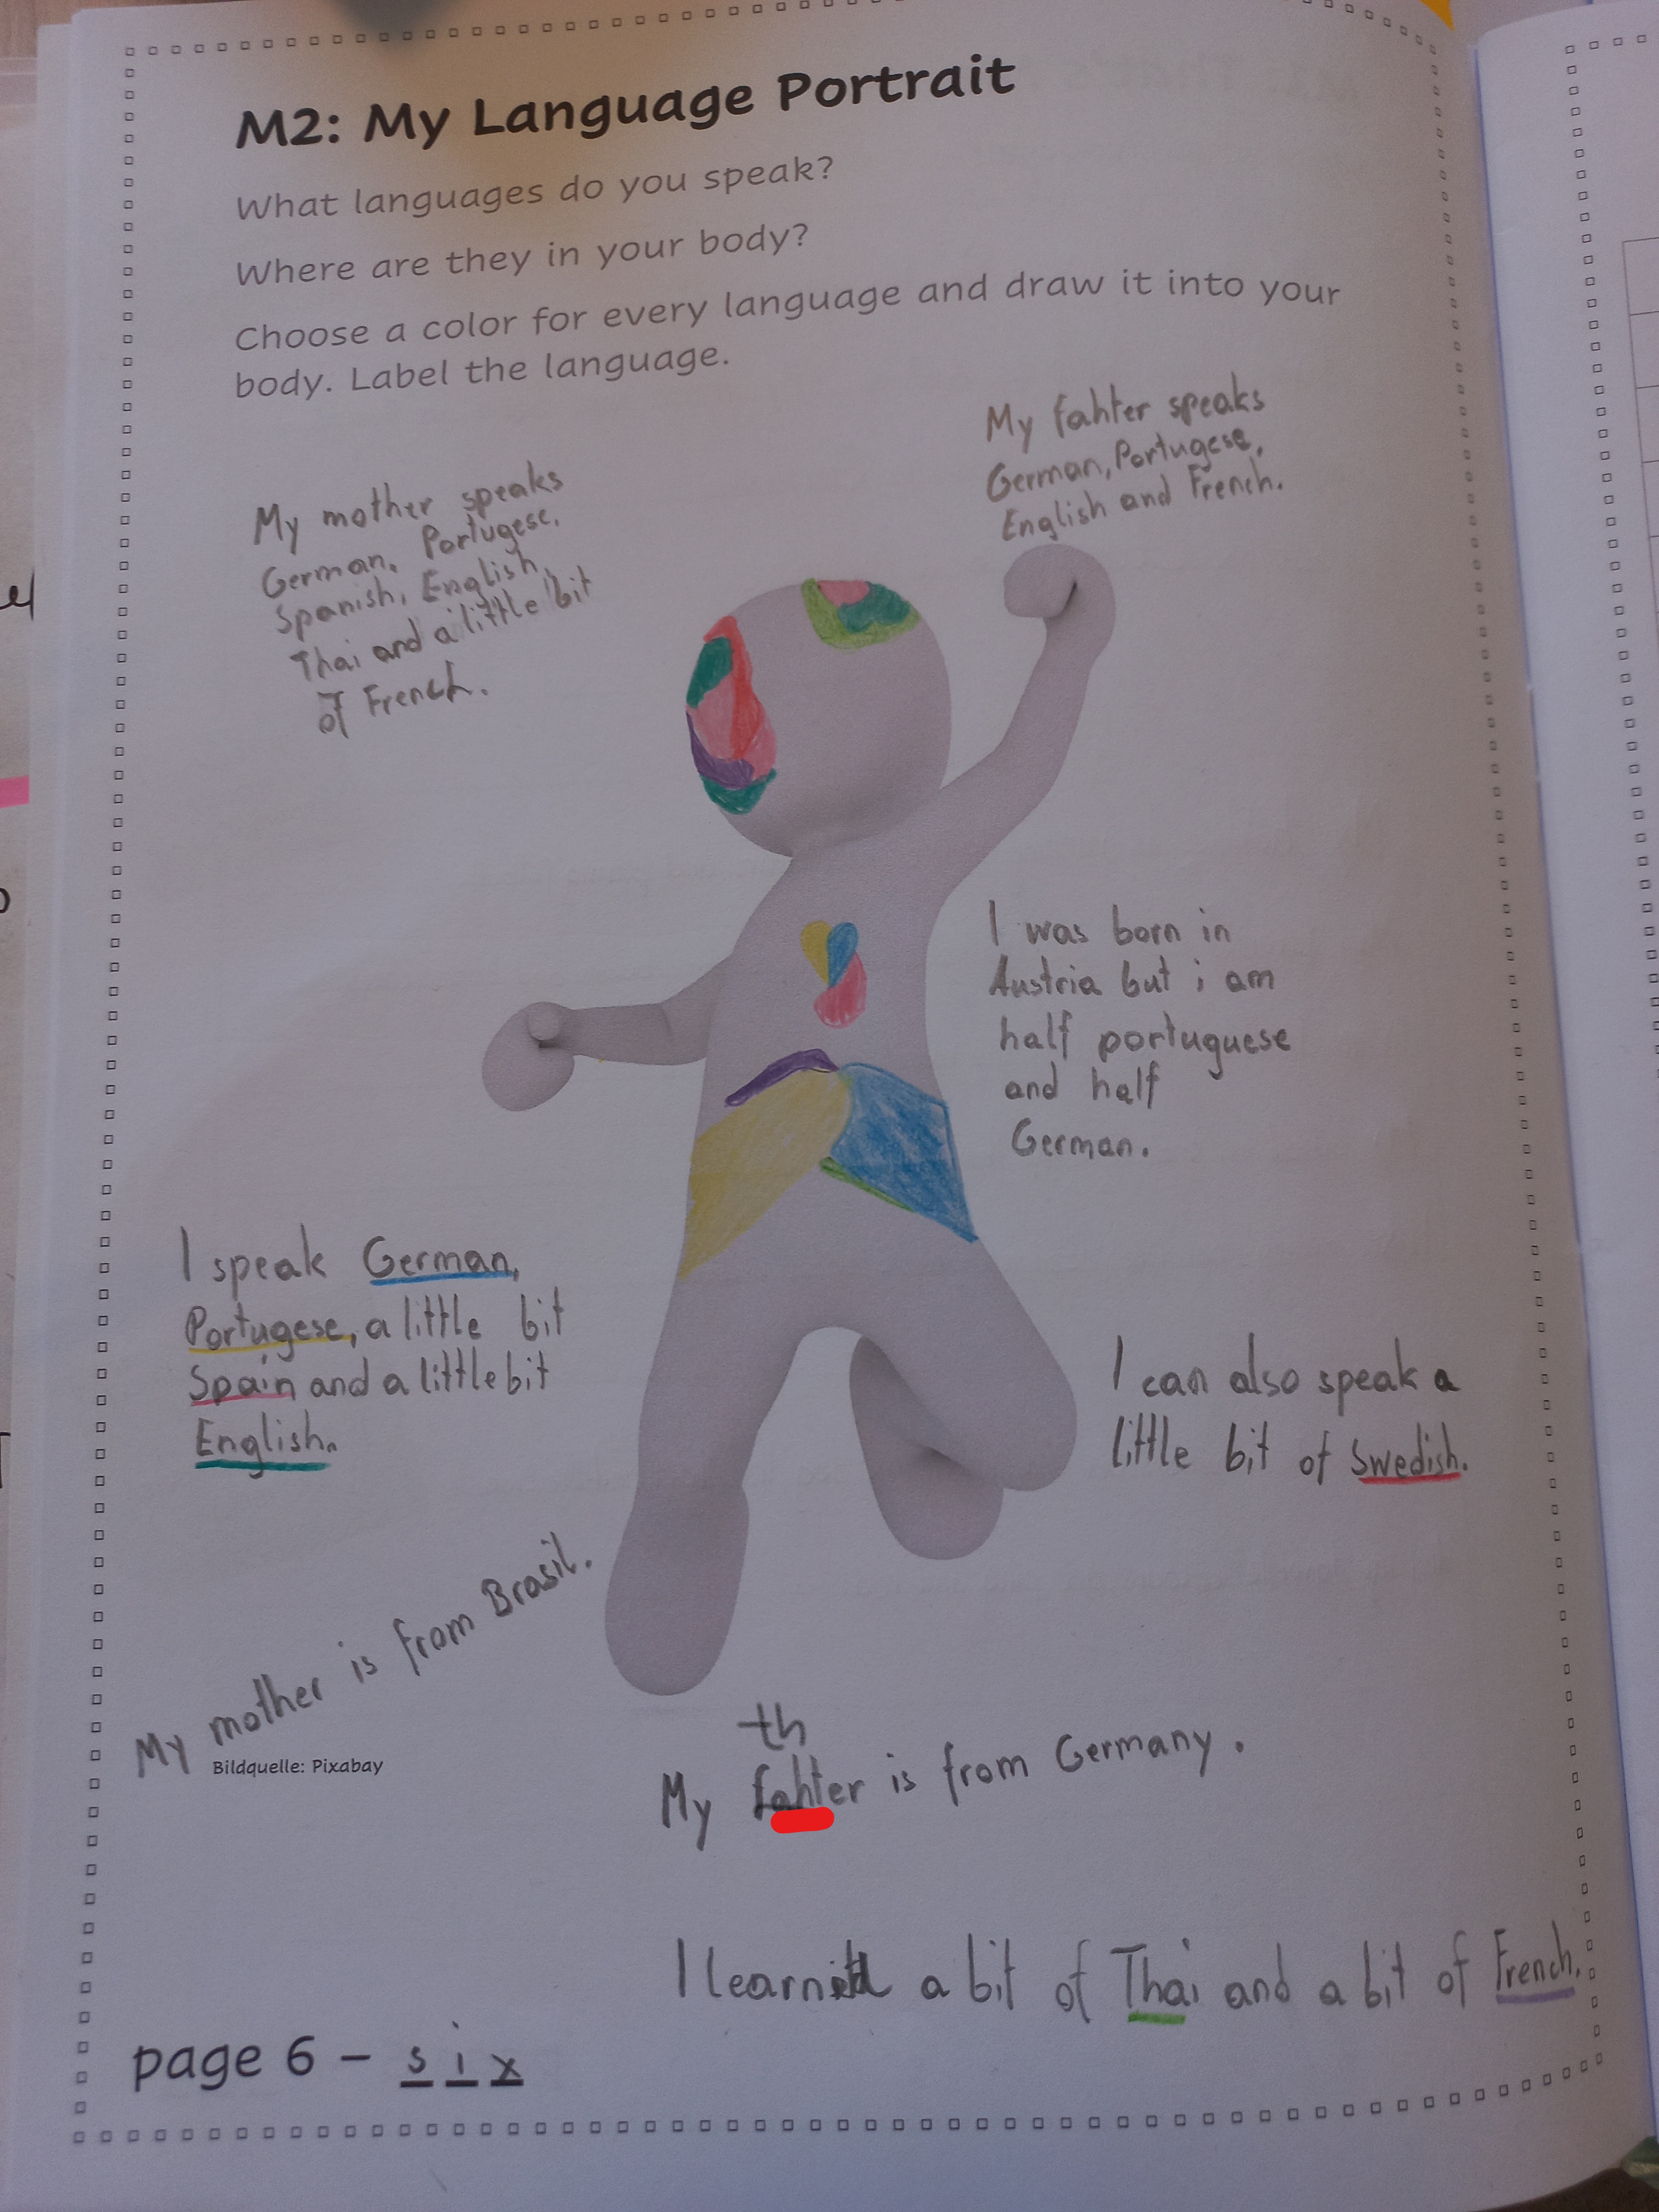 M2: My Language Portrait
What languages do you speak?
Where are they in your body?
Choose a color for every language and draw it into your
body. Label the language.
My mother speaks
German, Portugese,
Spanish, English,
Thai and a little bit
of French.
My fahter speaks
German, Portugese,
English and French.
I was born in
Austria but i am
half portuguese
and half
German.
I speak German,
Portugese, a little bit
Spain and a little bit
English.
I can also speak a
little bit of Swedish.
My mother is from Brasil.
Bildquelle: Pixabay
th
My fahter is from Germany.
I learned a bit of Thai and a bit of French.
page 6 – six